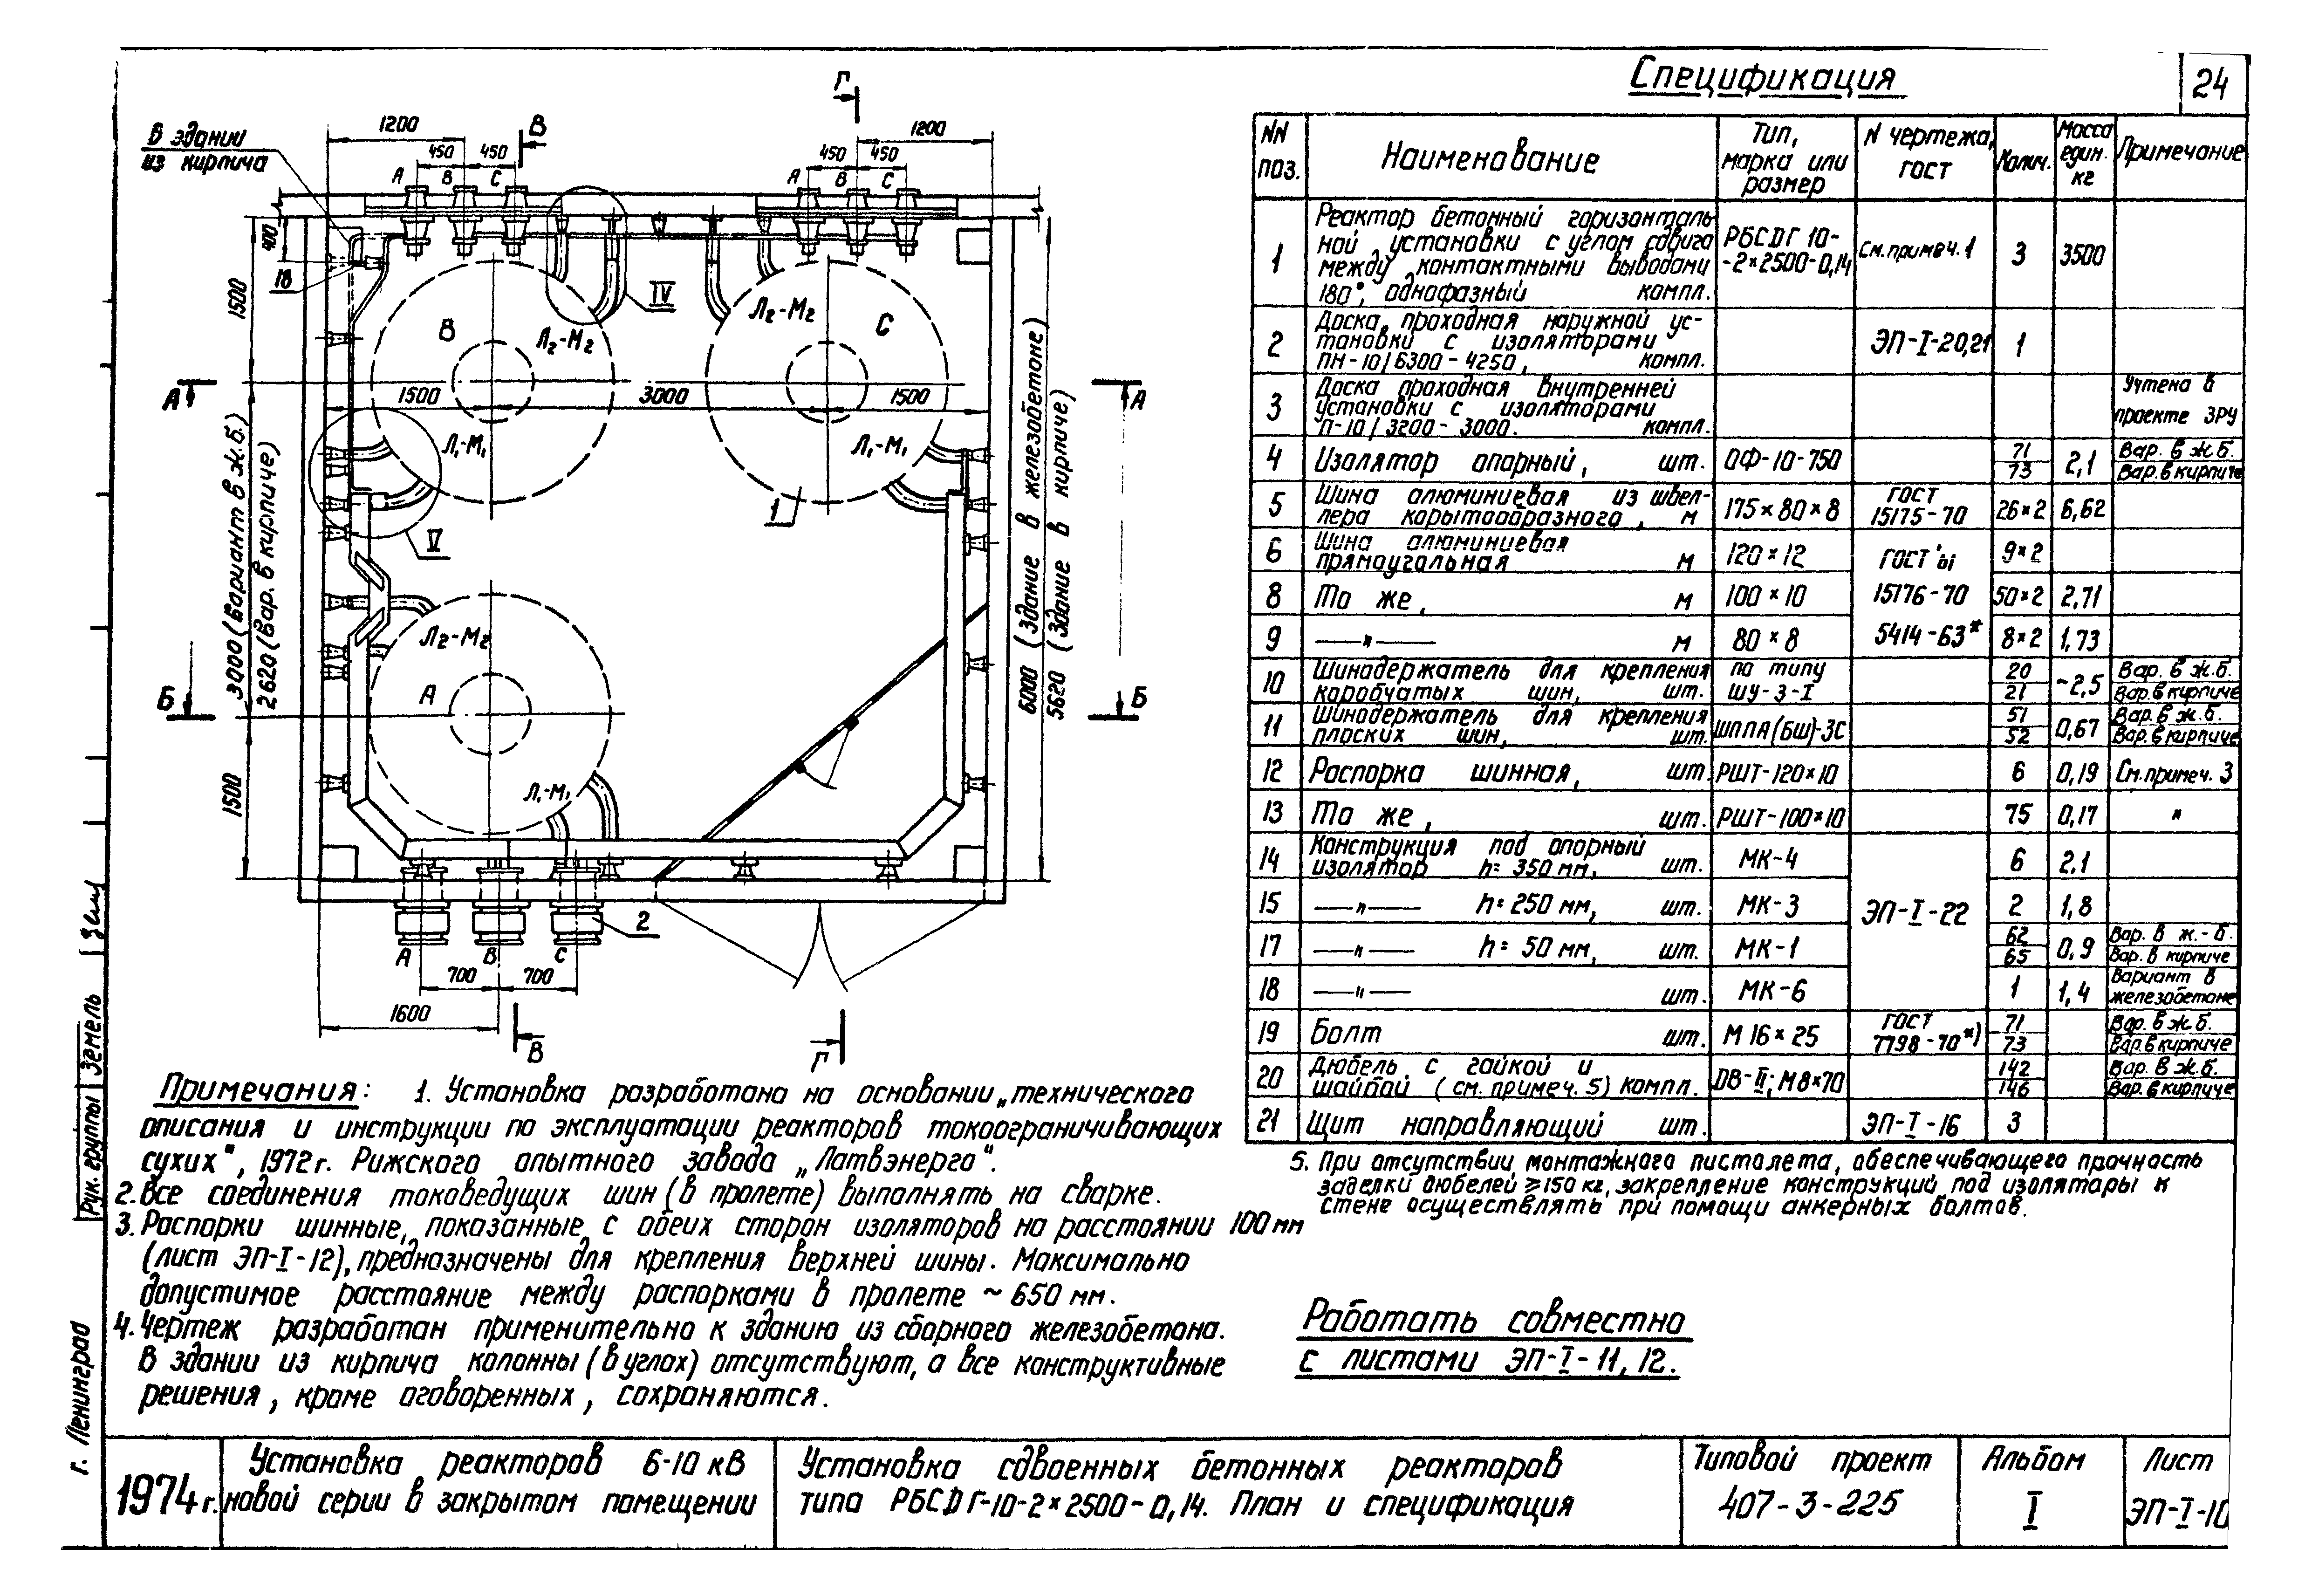 24
Спецификация
NN поз.
Наименование
Тип, марка или размер
N чертежа, ГОСТ
Колич.
Масса един. кг
Примечание
1 Реактор бетонный горизонталь
ной установки с углом сдвига РБСДГ 10-
между контактными выводами -2×2500-0,14 См. примеч. 1 3 3500
180°, однофазный компл.
2 Доска проходная наружной ус-
тановки с изоляторами ЭП-I-20,21 1
ПН-10/6300-4250, компл.
3 Доска проходная внутренней Учтена в
установки с изоляторами проекте ЗРУ
П-10/3200-3000. компл.
4 Изолятор опорный, шт. ОФ-10-750 71 2,1 Вар. в ж.б.
73 Вар. в кирпиче
5 Шина алюминиевая из швел- ГОСТ
лера корытообразного, м 175×80×8 15175-70 26×2 6,62
6 Шина алюминиевая
прямоугольная м 120×12 ГОСТ'ы 9×2
8 То же, м 100×10 15176-70 50×2 2,71
9 —"— м 80×8 5414-63* 8×2 1,73
10 Шинодержатель для крепления по типу 20 ~2,5 Вар. в ж.б.
коробчатых шин, шт. ШУ-3-I 21 Вар. в кирпиче
11 Шинодержатель для крепления 51 0,67 Вар. в ж.б.
плоских шин, шт. ШППА(БШ)-3С 52 Вар. в кирпиче
12 Распорка шинная, шт РШТ-120×10 6 0,19 См. примеч. 3
13 То же, шт. РШТ-100×10 75 0,17 "
14 Конструкция под опорный
изолятор h=350 мм, шт. МК-4 6 2,1
15 —"— h=250 мм, шт. МК-3 ЭП-I-22 2 1,8
17 —"— h=50 мм, шт. МК-1 62 0,9 Вар. в ж.-б.
65 Вар. в кирпиче
18 —"— шт. МК-6 1 1,4 Вариант в
железобетоне
19 Болт шт. М16×25 ГОСТ 71 Вар. в ж.б.
7798-70*) 73 Вар. в кирпиче
20 Дюбель с гайкой и 142 Вар. в ж.б.
шайбой (см. примеч. 5) компл. DВ-II; М8×70 146 Вар. в кирпиче
21 Щит направляющий шт. ЭП-I-16 3
В здании
из кирпича
1200
450 450
А В С
В
Г
1200
450 450
А В С
400
18
1500
IV
В
Л2-М2
Л2-М2
С
А
1500 3000 1500
А
Л1-М1
Л1-М1
1
V
3000 (вариант в ж.б.)
2620 (вар. в кирпиче)
6000 (здание в железобетоне)
5620 (здание в кирпиче)
Л2-М2
А
Б
Б
1500
Л1-М1
2
А В С
700 700
1600
В
Г
Примечания: 1. Установка разработана на основании „технического
описания и инструкции по эксплуатации реакторов токоограничивающих
сухих", 1972г. Рижского опытного завода „Латвэнерго".
2. Все соединения токоведущих шин (в пролете) выполнять на сварке.
3. Распорки шинные, показанные с обеих сторон изоляторов на расстоянии 100 мм
(лист ЭП-I-12), предназначены для крепления верхней шины. Максимально
допустимое расстояние между распорками в пролете ~ 650 мм.
4. Чертеж разработан применительно к зданию из сборного железобетона.
В здании из кирпича колонны (в углах) отсутствуют, а все конструктивные
решения, кроме оговоренных, сохраняются.
5. При отсутствии монтажного пистолета, обеспечивающего прочность
заделки дюбелей ≥150 кг, закрепление конструкций под изоляторы к
стене осуществлять при помощи анкерных болтов.
Работать совместно
с листами ЭП-I-11, 12.
Рук. группы Земель
г. Ленинград
1974 г.
Установка реакторов 6-10 кВ
новой серии в закрытом помещении
Установка сдвоенных бетонных реакторов
типа РБСДГ-10-2×2500-0,14. План и спецификация
Типовой проект
407-3-225
Альбом
I
Лист
ЭП-I-10